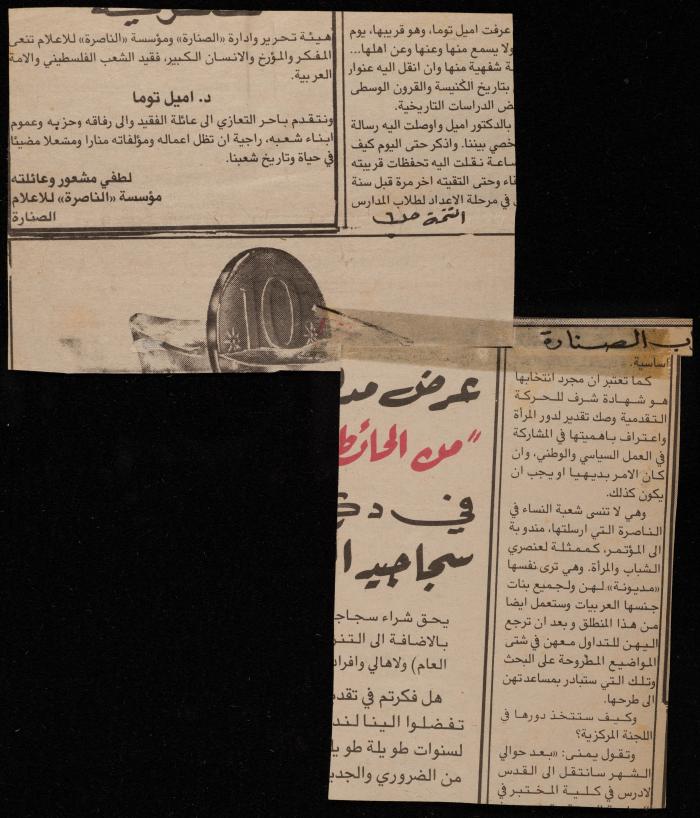 هيئة تحرير وادارة «الصنارة» ومؤسسة «الناصرة» للاعلام تنعى
المفكر والمؤرخ والانسان الكبير، فقيد الشعب الفلسطيني والامة
العربية.
د. اميل توما
ونتقدم باحر التعازي الى عائلة الفقيد والى رفاقه وحزبه وعموم
ابناء شعبه، راجية ان تظل اعماله ومؤلفاته منارا ومشعلا مضيئا
في حياة وتاريخ شعبنا.
لطفي مشعور وعائلته
مؤسسة «الناصرة» للاعلام
الصنارة
عرفت اميل توما، وهو قريبها، يوم
ولا يسمع منها وعنها وعن اهلها...
ة شفهية منها وان انقل اليه عنوان
بتاريخ الكنيسة والقرون الوسطى
ض الدراسات التاريخية.
بالدكتور اميل واوصلت اليه رسالة
خصي بيننا. واذكر حتى اليوم كيف
ساعة نقلت اليه تحفظات قريبته
قاء وحتى التقيته اخر مرة قبل سنة
في مرحلة الاعداد لطلاب المدارس
التتمة ص
10
الصنارة
اساسية.
كما تعتبر ان مجرد انتخابها
هو شهادة شرف للحركة
التقدمية وصك تقدير لدور المرأة
واعتراف باهميتها في المشاركة
في العمل السياسي والوطني، وان
كان الامر بديهيا او يجب ان
يكون كذلك.
وهي لا تنسى شعبة النساء في
الناصرة التي ارسلتها، مندوبة
الى المؤتمر، كممثلة لعنصري
الشباب والمرأة. وهي ترى نفسها
«مديونة» لهن ولجميع بنات
جنسها العربيات وستعمل ايضا
من هذا المنطلق وبعد ان ترجع
اليهن للتداول معهن في شتى
المواضيع المطروحة على البحث
وتلك التي ستبادر بمساعدتهن
الى طرحها.
وكيف ستتخذ دورها في
اللجنة المركزية؟
وتقول يمنى: «بعد حوالي
الشهر سانتقل الى القدس
لادرس في كلية المختبر في
عرض
"من الحائط
في
سجاجيد
يحق شراء سجاجـ
بالاضافة الى التنز
العام) ولاهالي وافراد
هل فكرتم في تقد
تفضلوا الينا لند
لسنوات طويلة طويـ
من الضروري والجديـ